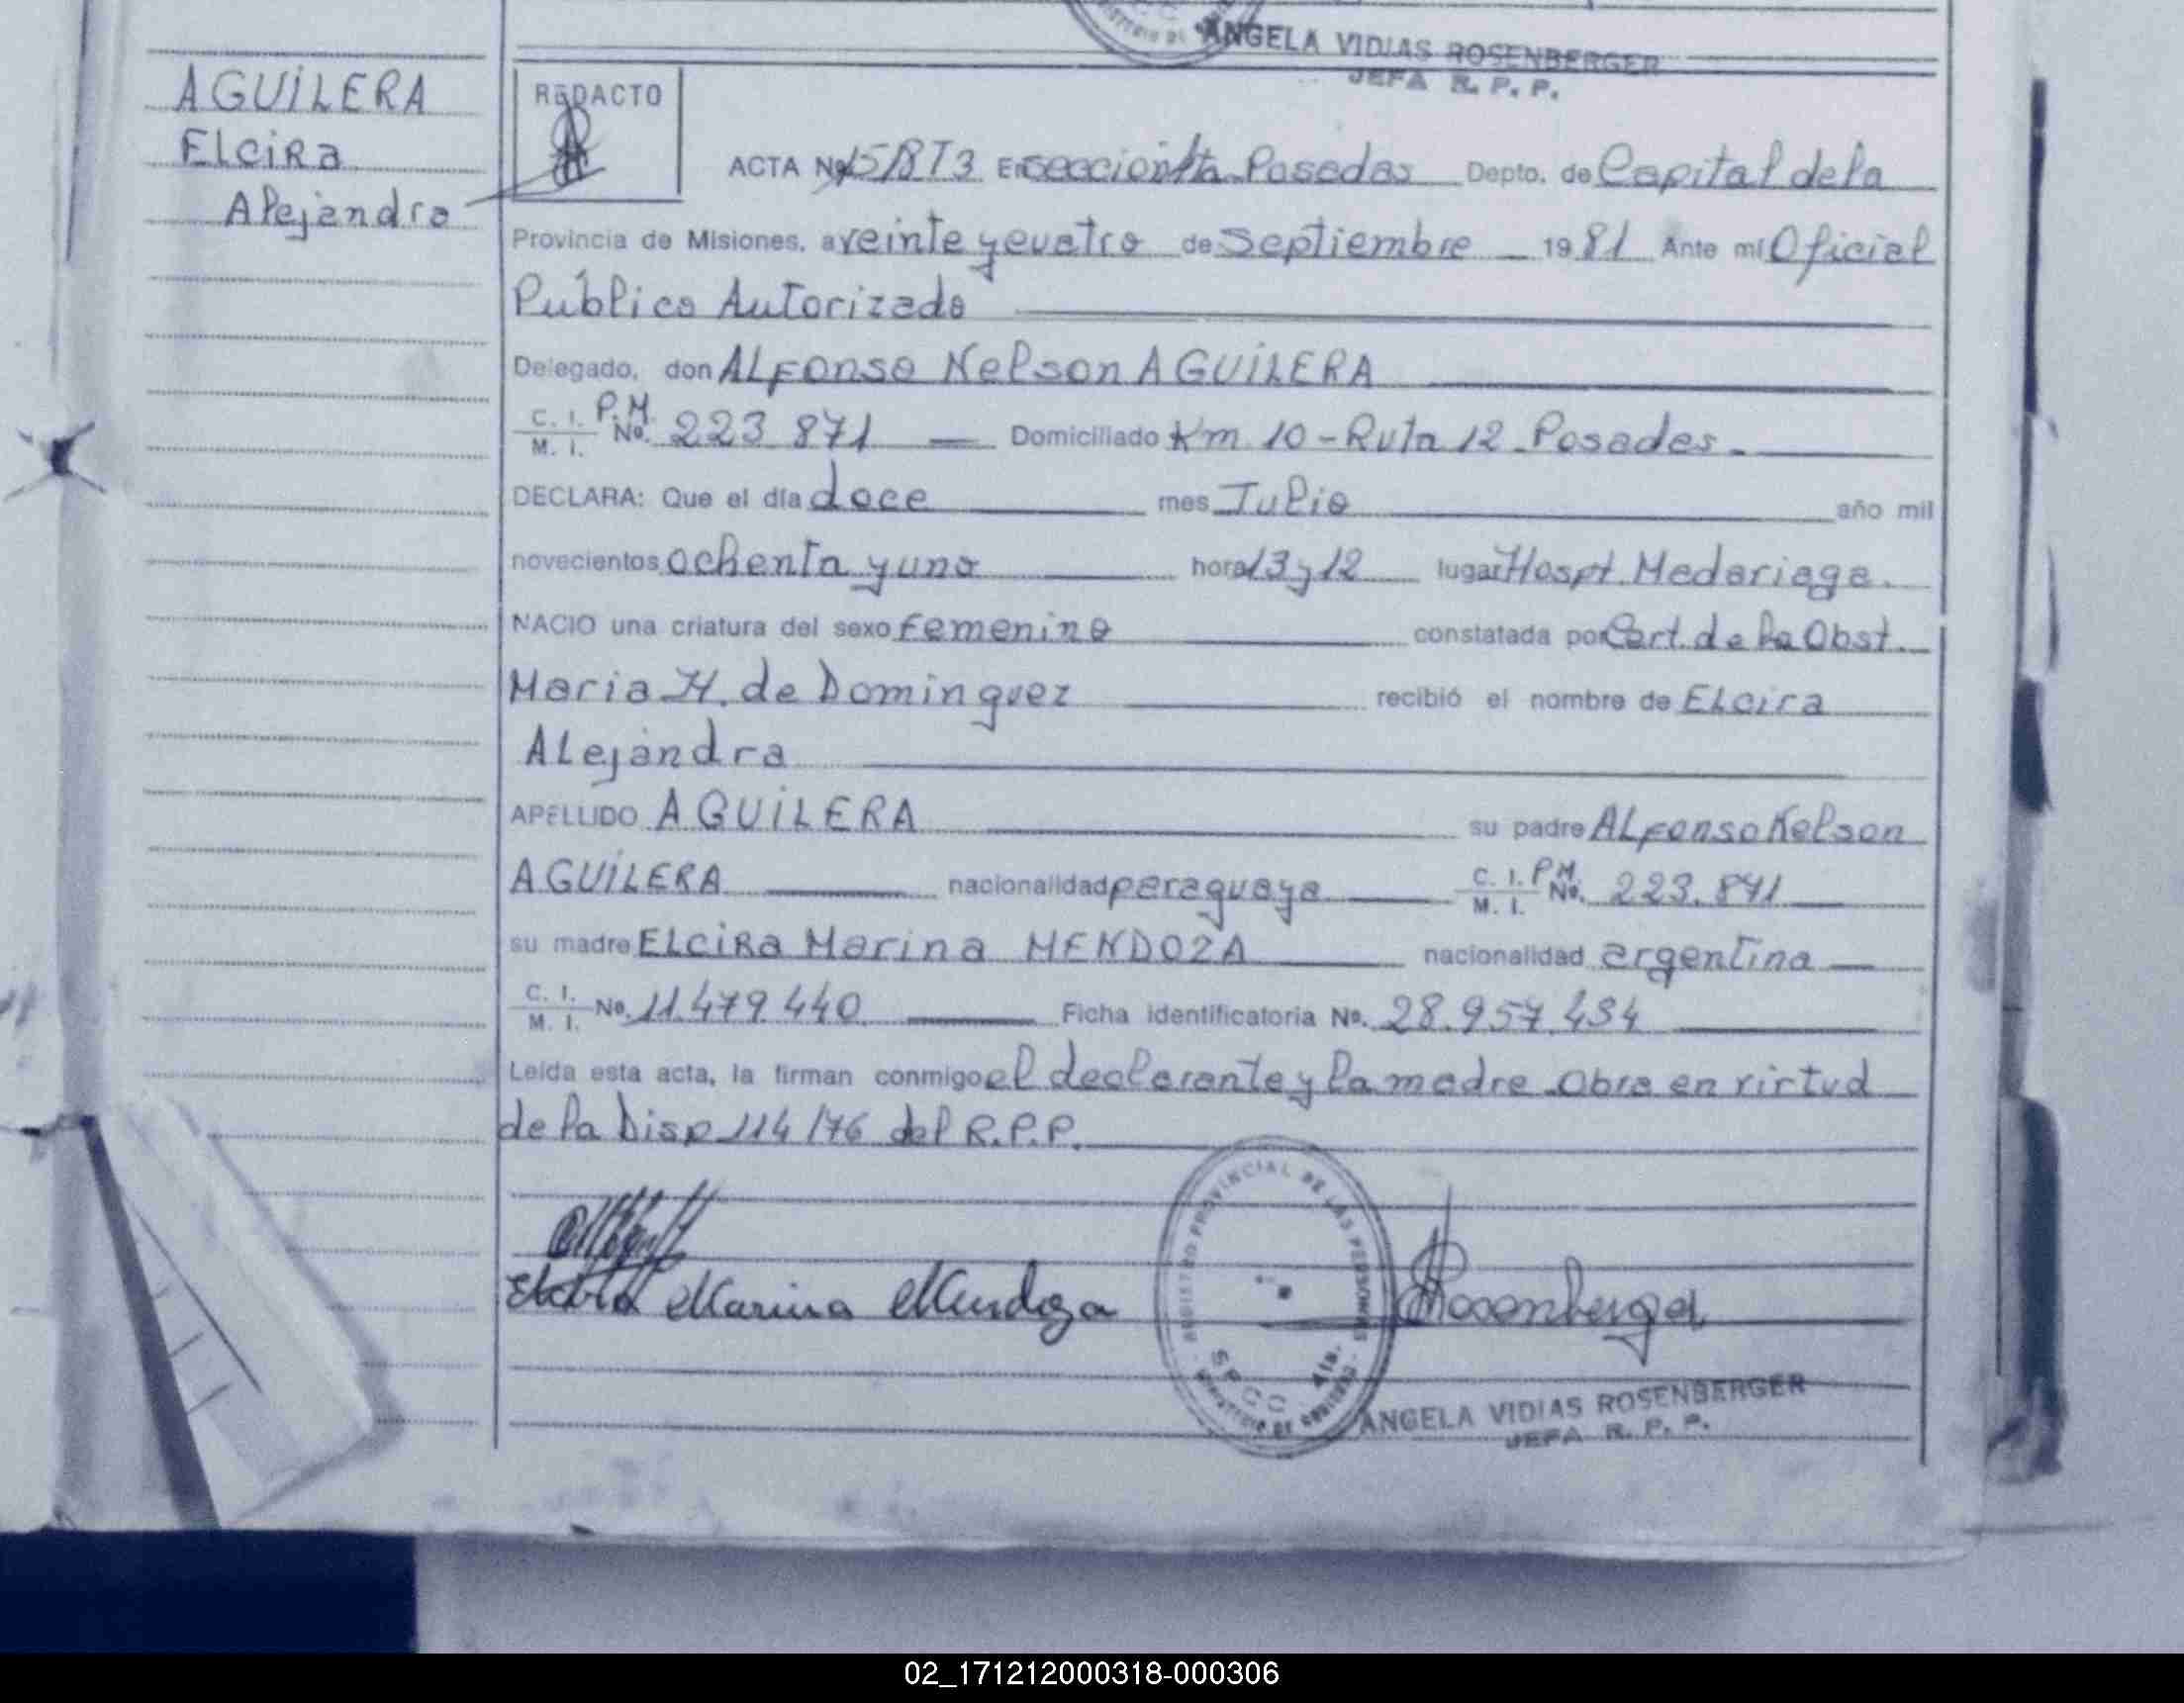 ANGELA VIDIAS ROSENBERGER
JEFA R. P. P.
AGUILERA
Elcira
Alejandra
REDACTO
ACTA Nº 15/8T3 En sección 4ta. Posadas Depto. de Capital de la
Provincia de Misiones, a veinte y cuatro de Septiembre 1981 Ante mí Oficial
Público Autorizado
Delegado, don ALFonso Nelson AGUILERA
C. I. P.M.
M. I. Nº. 223 871 Domiciliado Km 10 - Ruta 12 - Posadas.
DECLARA: Que el día doce mes Julio año mil
novecientos ochenta y uno hora 13 y 12 lugar Hospt. Madariaga.
NACIO una criatura del sexo Femenino constatada por Cert. de la Obst.
Maria H. de Dominguez recibió el nombre de ELcira
ALejandra
APELLIDO AGUILERA su padre ALFonso Nelson
AGUILERA nacionalidad paraguaya C. I. P.M. M. I. Nº. 223.871
su madre ELciRa Marina MENDOZA nacionalidad argentina
C. I. M. I. Nº. 11.479.440 Ficha identificatoria Nº. 28.957.434
Leída esta acta, la firman conmigo el declarante y la madre. Obra en virtud
de la Disp. 114/76 del R.P.P.
Elcira Marina Mendoza
Rosenberger
REGISTRO PROVINCIAL DE LAS PERSONAS
SECC. 4ta.
ANGELA VIDIAS ROSENBERGER
JEFA R. P. P.
02_171212000318-000306